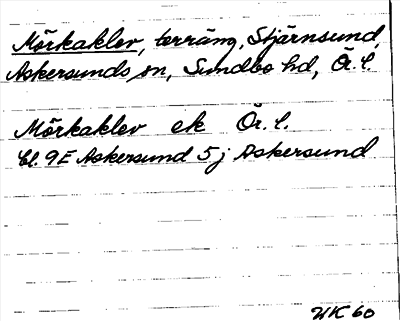 Mörkaklev, terräng, Stjärnsund,
Askersunds sn, Sundbo hd, Ör. l.
Mörkaklev ek Ör. l.
bl. 9E Askersund 5j Askersund
UK 60